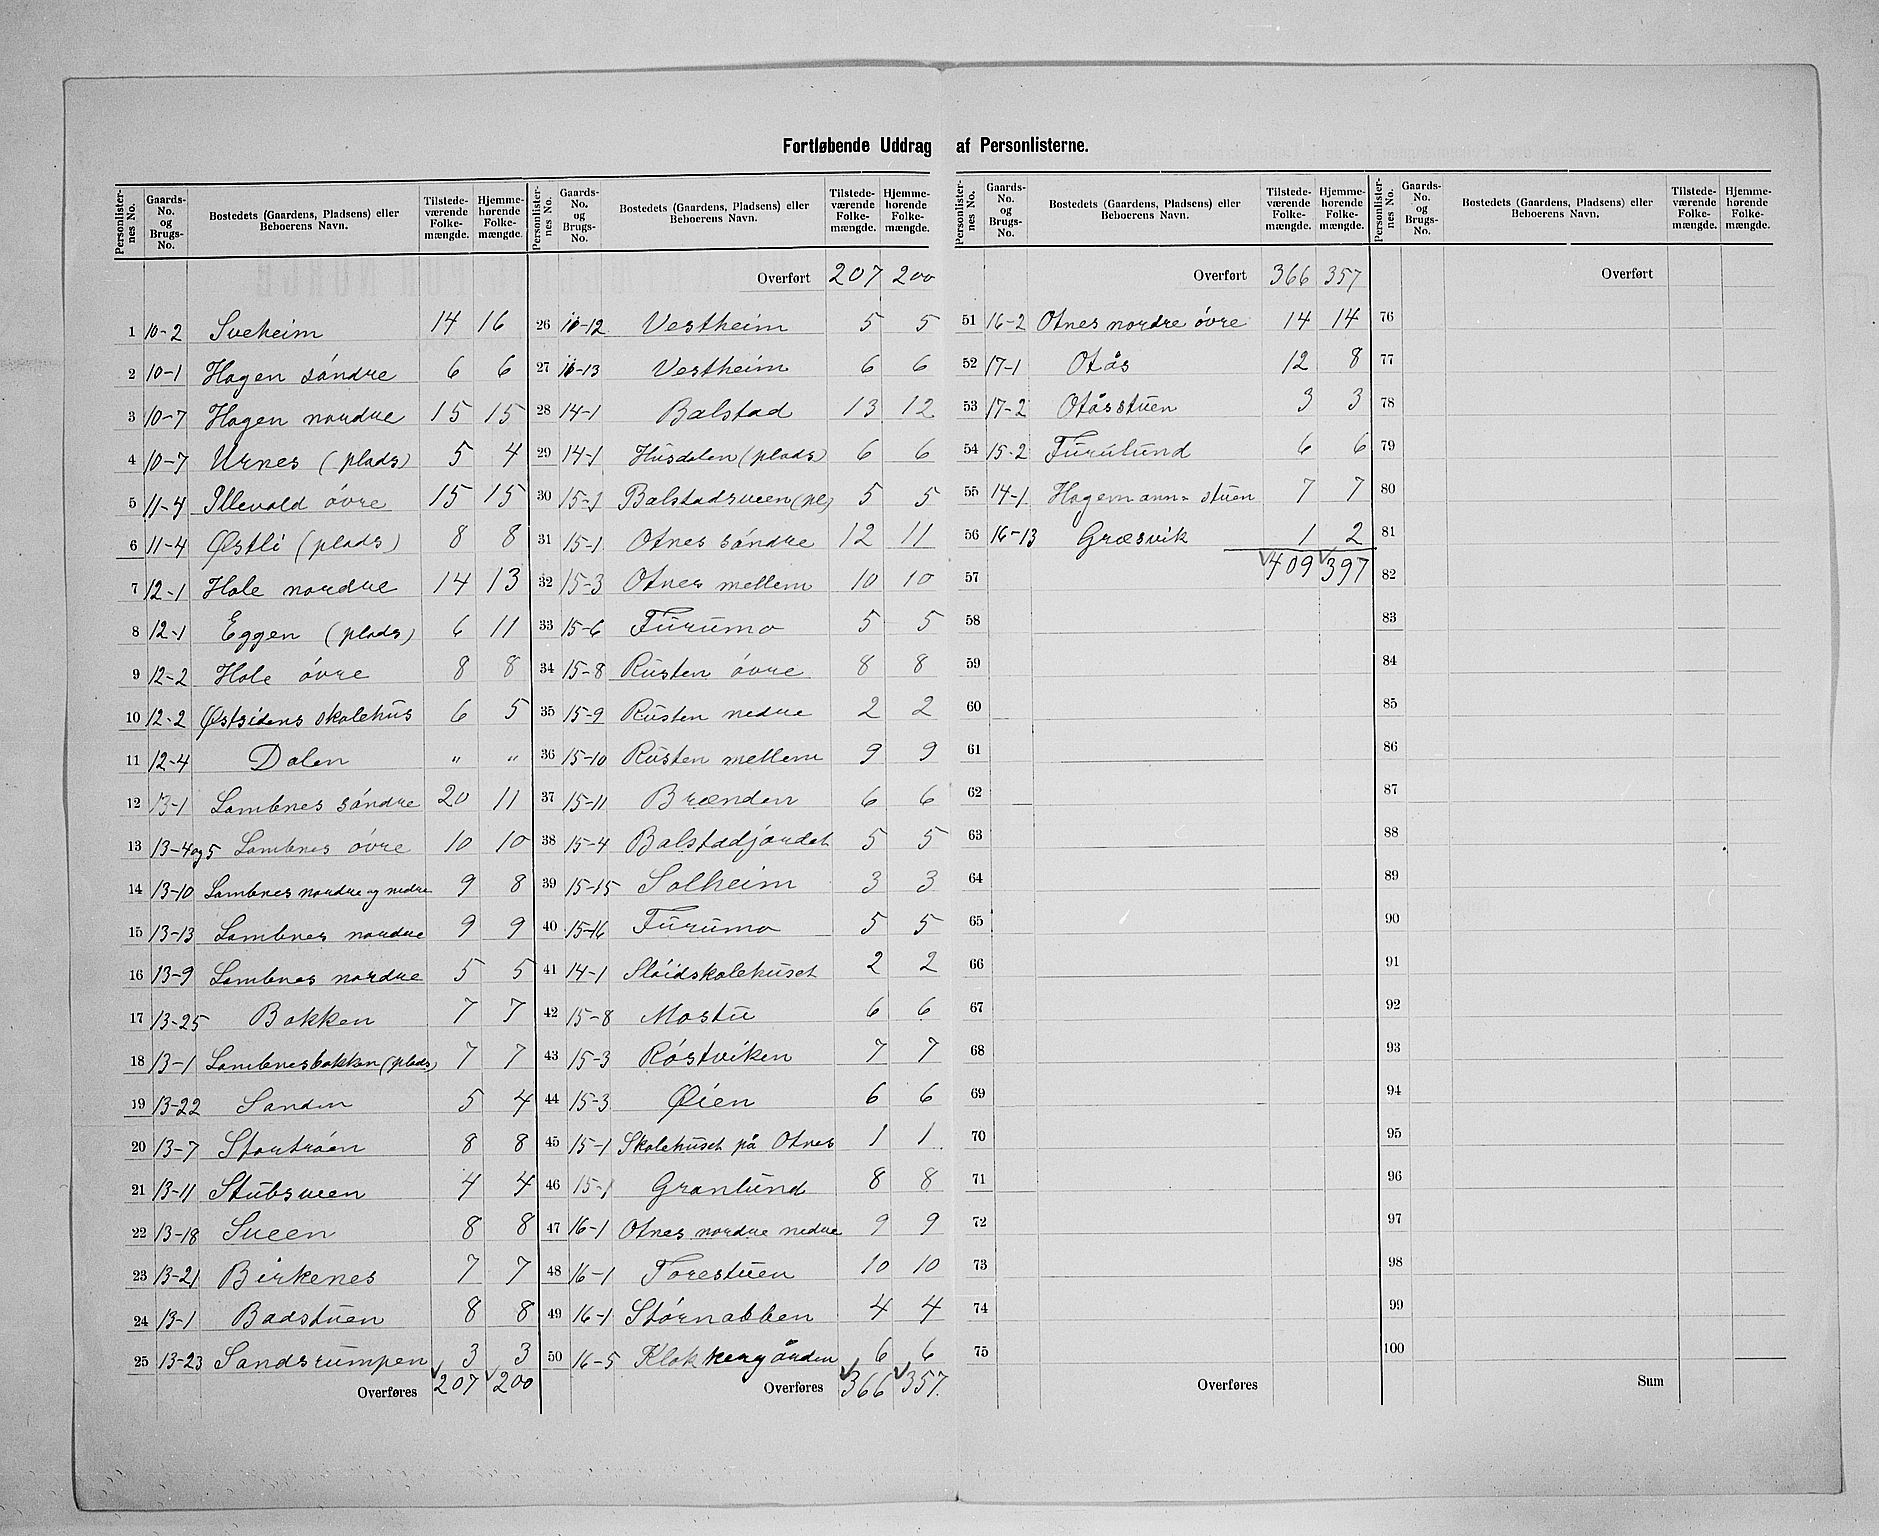 Fortløbende Uddrag af Personlisterne.
Personlisternes No. | Gaards-No. og Brugs-No. | Bostedets (Gaardens, Pladsens) eller Beboerens Navn. | Tilstedeværende Folkemængde. | Hjemmehørende Folkemængde.
1 10-2 Sveheim 14 16
2 10-1 Hagen söndre 6 6
3 10-7 Hagen nordre 15 15
4 10-7 Urnes (plads) 5 4
5 11-4 Illevold övre 15 15
6 11-4 Østli (plads) 8 8
7 12-1 Hole nordre 14 13
8 12-1 Eggen (plads) 6 11
9 12-2 Hole övre 8 8
10 12-2 Østsidens skolehus 6 5
11 12-4 Dalen " "
12 13-1 Lombnes söndre 20 11
13 13-4og5 Lombnes övre 10 10
14 13-10 Lombnes nordre og nedre 9 8
15 13-13 Lombnes nordre 9 9
16 13-9 Lombnes nordre 5 5
17 13-25 Bakken 7 7
18 13-1 Lombnesbakken (plads) 7 7
19 13-22 Sanden 5 4
20 13-7 Stortröen 8 8
21 13-11 Stubsveen 4 4
22 13-18 Sveen 8 8
23 13-21 Birkenes 7 7
24 13-1 Badstuen 8 8
25 13-23 Sandsrumpen 3 3
Overføres 207 200
Overført 207 200
26 10-12 Vestheim 5 5
27 10-13 Vestheim 6 6
28 14-1 Balstad 13 12
29 14-1 Husdalen (plads) 6 6
30 15-1 Balstadsveen (pl) 5 5
31 15-1 Otnes söndre 12 11
32 15-3 Otnes mellem 10 10
33 15-6 Furumo 5 5
34 15-8 Rusten övre 8 8
35 15-9 Rusten nedre 2 2
36 15-10 Rusten mellem 9 9
37 15-11 Brænden 6 6
38 15-4 Balstadjordet 5 5
39 15-15 Solheim 3 3
40 15-16 Furumo 5 5
41 14-1 Slöidskolehuset 2 2
42 15-8 Mostu 6 6
43 15-3 Röstviken 7 7
44 15-3 Øien 6 6
45 15-1 Skolehuset på Otnes 1 1
46 15-1 Granlund 8 8
47 16-1 Otnes nordre nedre 9 9
48 16-1 Torestuen 10 10
49 16-1 Störnabben 4 4
50 16-5 Klokkergården 6 6
Overføres 366 357.
Overført 366 357
51 16-2 Otnes nordre övre 14 14
52 17-1 Otås 12 8
53 17-2 Otåsstuen 3 3
54 15-2 Furulund 6 6
55 14-1 Hagemannstuen 7 7
56 16-13 Græsvik 1 2
57 409 397
58
59
60
61
62
63
64
65
66
67
68
69
70
71
72
73
74
75
Overføres
Overført
76
77
78
79
80
81
82
83
84
85
86
87
88
89
90
91
92
93
94
95
96
97
98
99
100
Sum